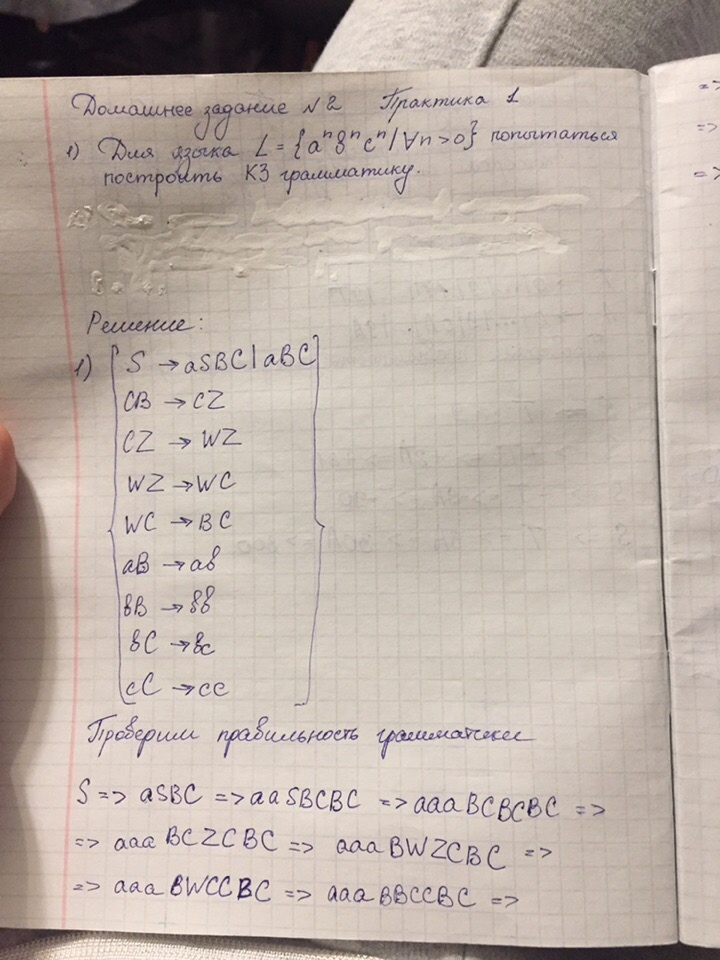 Домашнее задание №2 Практика 1
1) Для языка L = {aⁿbⁿcⁿ | ∀n>0} попытаться
построить КЗ грамматику.
Решение:
1) S → aSBC | aBC
CB → CZ
CZ → WZ
WZ → WC
WC → BC
aB → ab
bB → bb
bC → bc
cC → cc
Проверим правильность грамматики
S => aSBC => aaSBCBC => aaaBCBCBC =>
=> aaaBCZCBC => aaaBWZCBC =>
=> aaaBWCCBC => aaaBBCCBC =>
=>
=>
=>